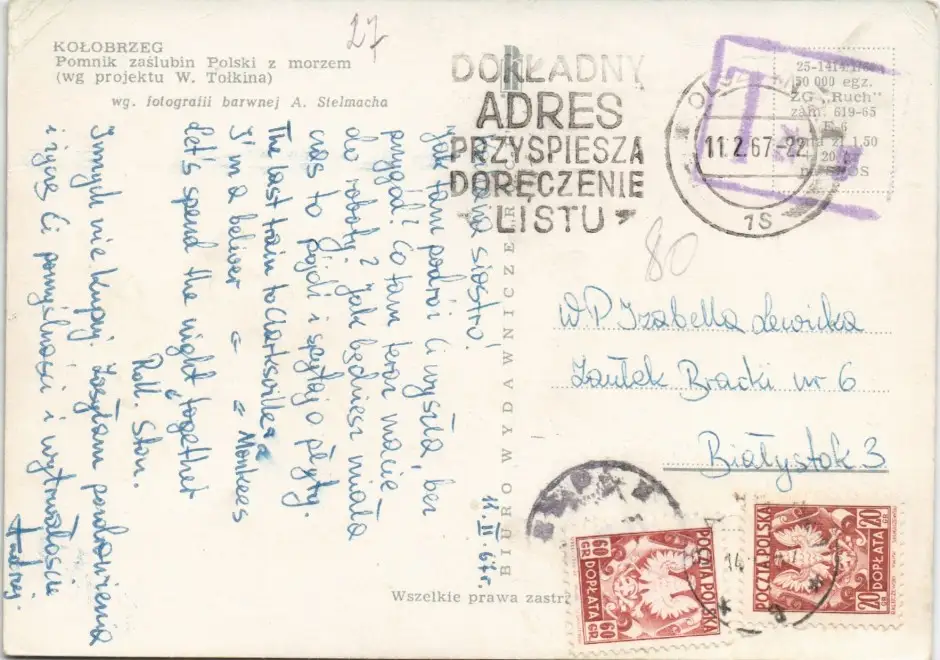 KOŁOBRZEG
Pomnik zaślubin Polski z morzem
(wg projektu W. Tołkina)
wg. fotografii barwnej A. Stelmacha
27
DOKŁADNY
ADRES
PRZYSPIESZA
DORĘCZENIE
LISTU
T
11.2.67-22
1S
25-1414/1/66
50 000 egz.
ZG „Ruch"
zam. 619-65
zł 1,50
80
BIURO WYDAWNICZE
11.II.67r.
siostro!
Jak tam podróż Ci wyszła, bez
przygód? Co tam teraz macie
do roboty? Jak będziesz miała
czas to pójdź i spytaj o płyty.
The last train to Clarksville
I'm a beliver = = Monkees
Let's spend the night together
Roll. Ston.
Innych nie kupuj. Zasyłam pozdrowienia
i życzę Ci pomyślności i wytrwałości
Andrzej.
W.P. Izabella Lewicka
Zaułek Bracki nr 6
Białystok 3
Wszelkie prawa zastr
60 GR
DOPŁATA
60 GR
POCZTA POLSKA
POCZTA POLSKA
20 GR
DOPŁATA
20 GR